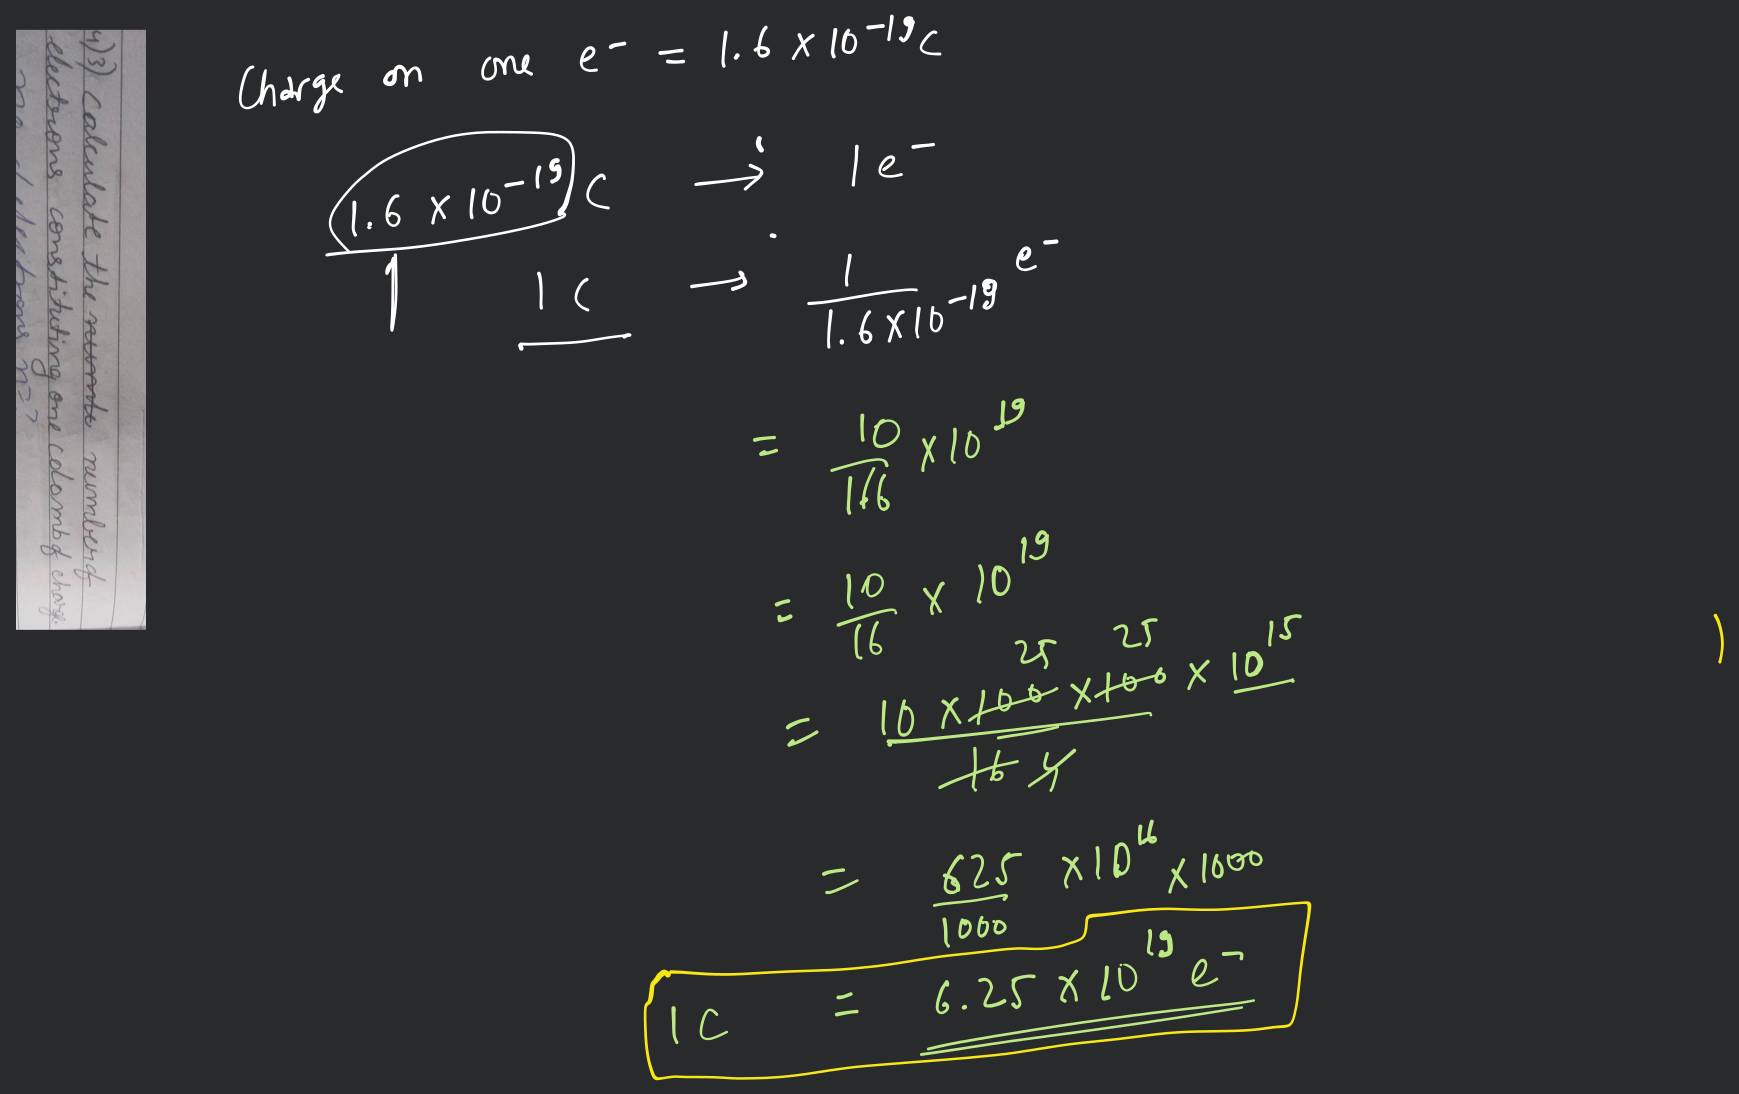 4)3) calculate the number of
electrons constituting one colomb of charge.
no of electrons n=?
Charge on one e⁻ = 1.6 × 10⁻¹⁹ C
1.6 × 10⁻¹⁹ C → 1 e⁻
1 1 C → 1/(1.6×10⁻¹⁹) e⁻
= 10/16 × 10¹⁹
= 10/16 × 10¹⁹
25 25
= (10 × 100 × 100)/(16 4) × 10¹⁵
= 625/1000 × 10¹⁶ × 1000
1 C = 6.25 × 10¹⁹ e⁻
)